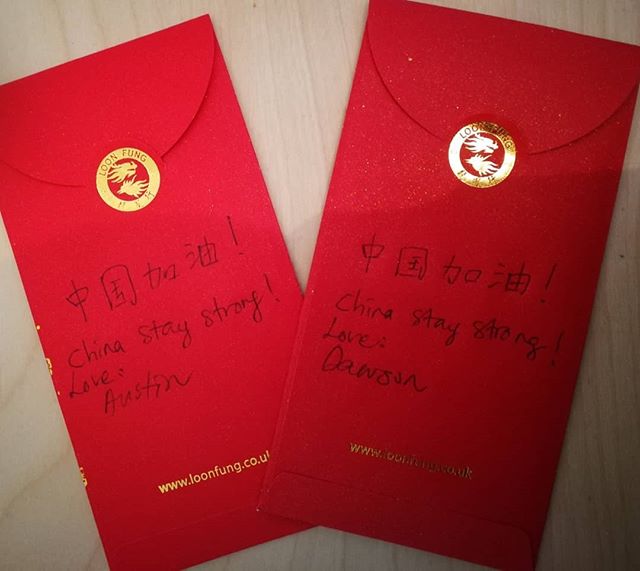 LOON FUNG
中国加油!
China stay strong!
Love:
Austin
www.loonfung.co.uk
LOON FUNG
中国加油!
China stay strong!
Love:
Dawson
www.loonfung.co.uk